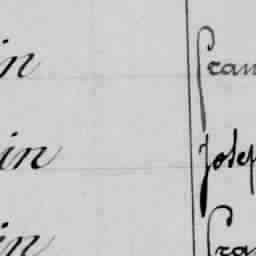 in fran
in Josep
in fra